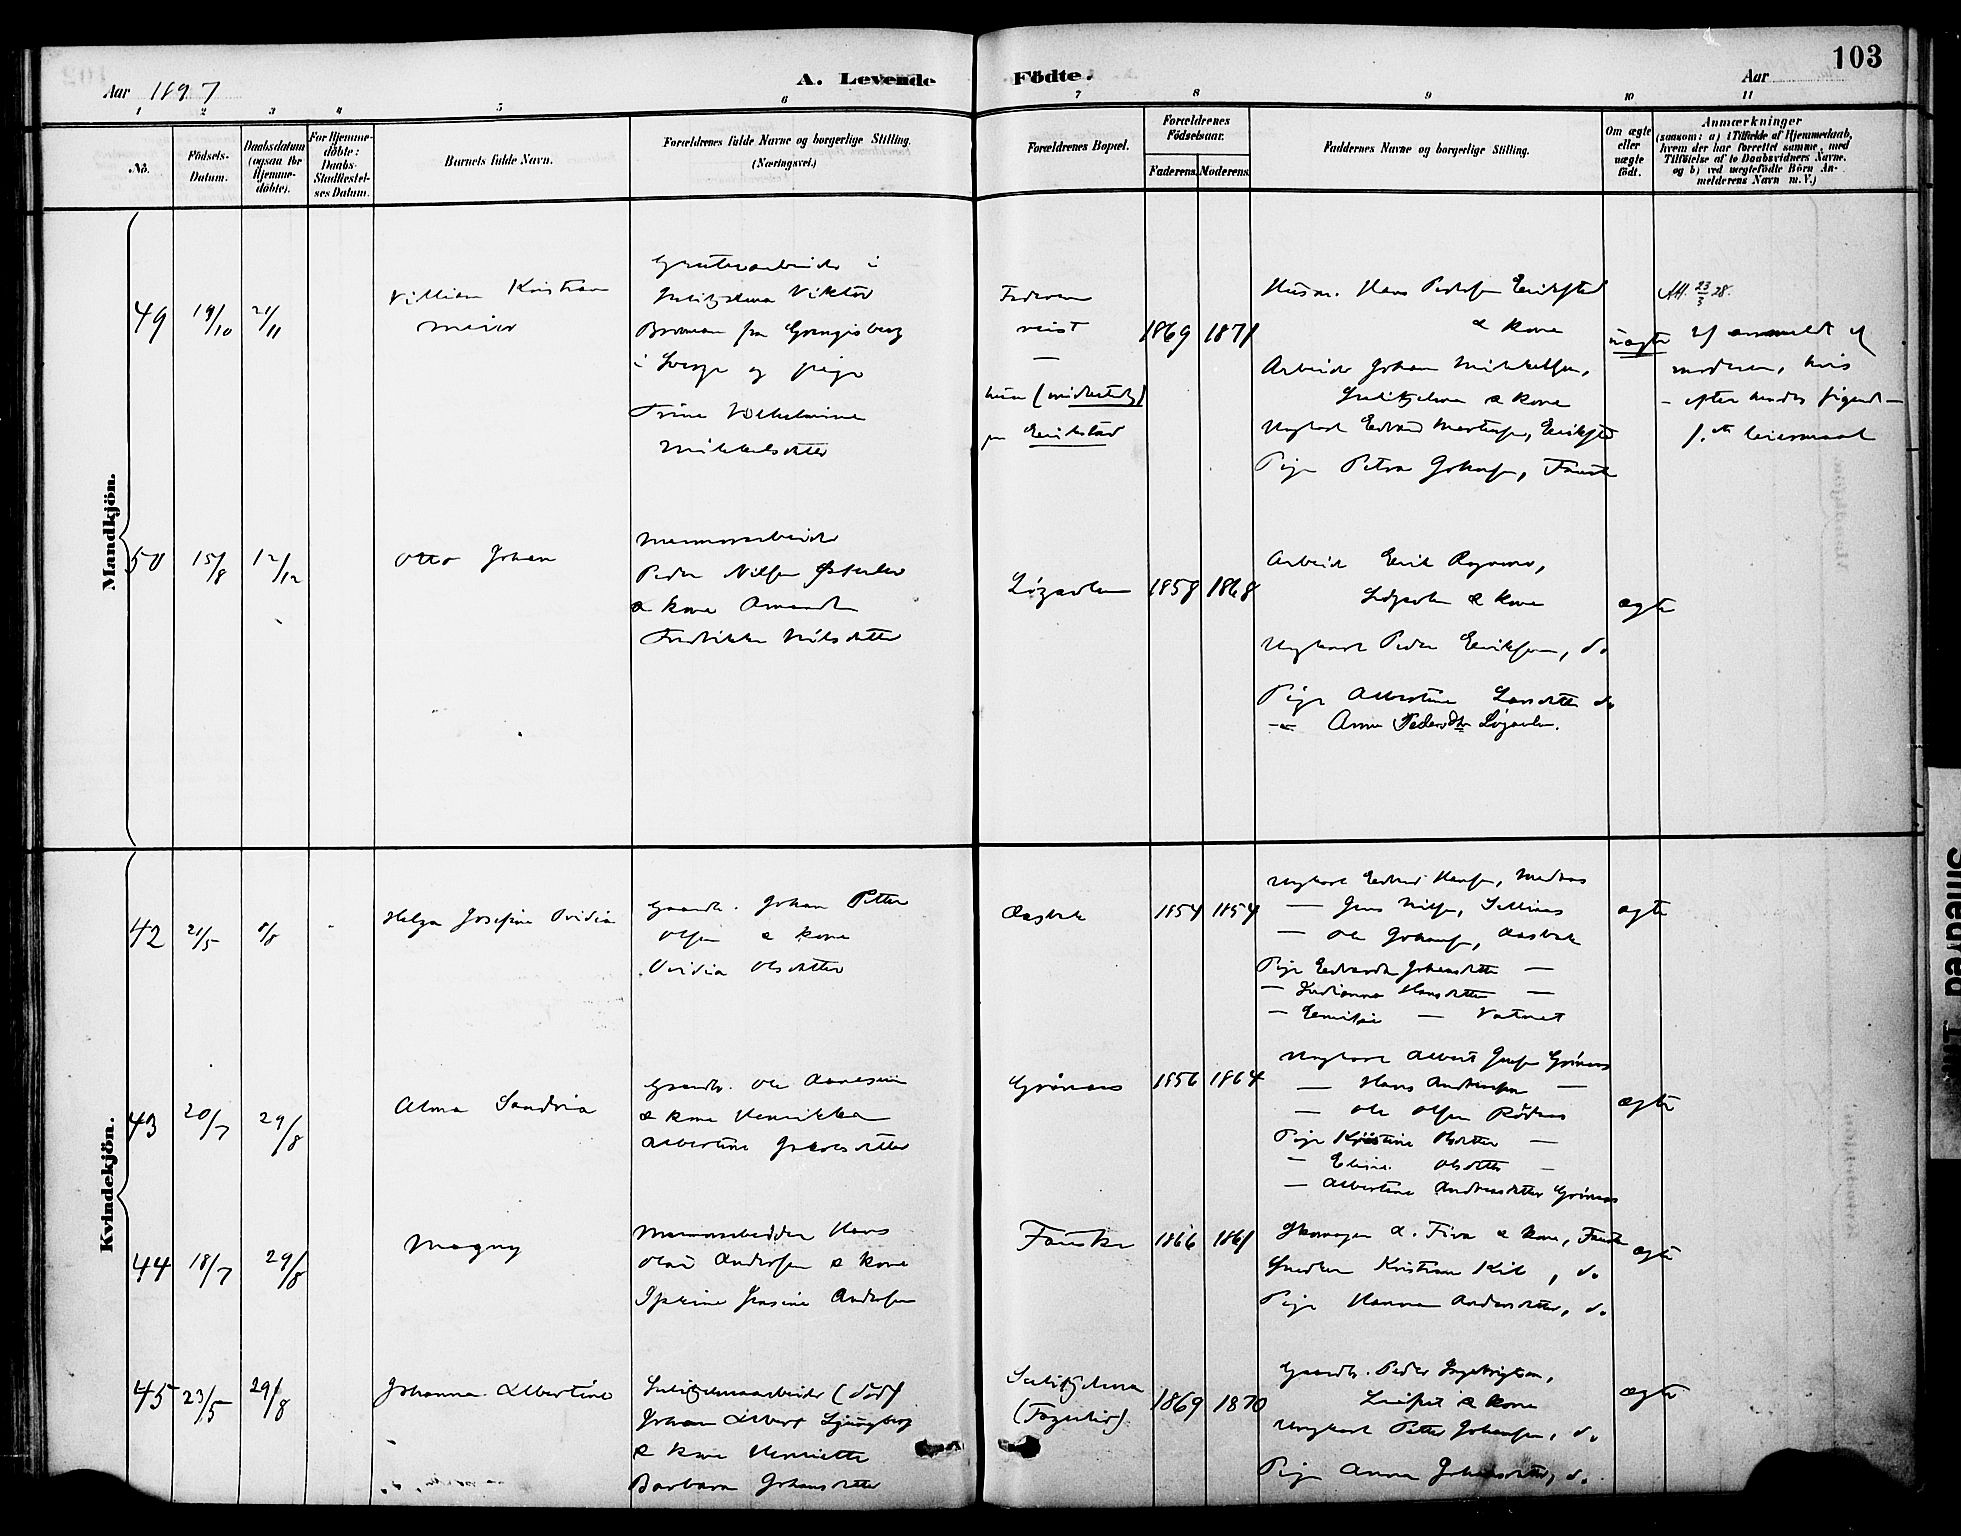 103
Aar 1897
A. Levende
Födte.
Aar
1 2 3 4 5 6 7 8 9 10 11
No.
Födsels-
Datum.
Daabsdatum
(ogsaa for
Hjemme-
döbte).
For Hjemme-
döbte:
Daabs-
Stadfæstel-
ses Datum.
Barnets fulde Navn.
Forældrenes fulde Navne og borgerlige Stilling.
(Næringsvei.)
Forældrenes Bopæl.
Forældrenes
Födselsaar.
Faderens. Moderens.
Faddernes Navne og borgerlige Stilling.
Om ægte
eller
uægte
födt.
Anmærkninger
(saasom: a) i Tilfælde af Hjemmedaab,
hvem der har forrettet samme, med
Tilföielse af to Daabsvidners Navne,
og b) ved uægtefödte Börn An-
melderens Navn m. V.)
Mandkjön.
49
19/10
21/11
Villiam Kristian
Meier
Grubearbeider i
Sulitjelma Viktor
Broman fra Grengisberg
i Sverge og pige
Trine Vilhelmine
Mikkelsdatter
Faderen
reist
—
hun (midlertidig)
paa Erikstad
1869
1871
Husm. Hans Pedersen Erikstad
& kone
Arbeider Johan Mikkelsen,
Sulitjelma & kone
Ungkarl Edvard Martinsen, Erikstad
Pige Petra Johansen, Fauske
uægte
Att. 23/3 28.
anmeldt af
moderen, hvis
– efter hendes sigende –
1.ste leiermaal
50
15/8
12/12
Otto Johan
Marmorarbeider
Peder Nilsen
& kone Amanda
Fredrikke Nilsdatter
Løgavlen
1858
1868
Arbeider Erik
Løgavlen & kone
Ungkarl Peder Eriksen, do
Pige Albertine Larsdatter do
— Anna Pedersdtr Løgavlen.
ægte
Kvindekjön.
42
21/5
8/8
Helga Josefine Ovidia
Gaardbr. Johan Petter
Olsen & kone
Ovidia Olsdatter
Aasbak
1854
1854
Ungkarl Edvard Hansen,
— Jens Nilsen,
— Ole Johansen, Aasbak
Pige Edvarda Johansdatter —
— Hansdatter —
— Emilie — Vatnet
ægte
43
20/7
29/8
Alma Sandria
Gaardbr. Ole
& kone Henrikka
Albertine Jakobsdatter
Grønaas
1856
1864
Ungkarl Albert Jensen Grønaas
— Hans Andreassen —
— Ole Olsen Rödaas
Pige Kristine Olsdatter —
— Elise Olsdatter —
— Albertine Andreasdatter Grønaas
ægte
44
18/7
29/8
Magny
Marmorarbeider Hans
Olai Andersen & kone
Jensine Andersen
Fauske
1866
1861
& kone, Fauske
Snedker Kristian Kil, do
Pige Hanna Andersdatter, do
ægte
45
23/5
29/8
Johanna Albertine
Sulitjelmaarbeider (död)
Johan Albert Ljungberg
& kone Henriette
Barbara Johansdatter
Sulitjelma
(Fagerlid)
1869
1870
Gaardbr. Peder Ingebrigtsen,
& kone
Ungkarl Petter Johansen, do
Pige Anna Johansdatter, do
ægte